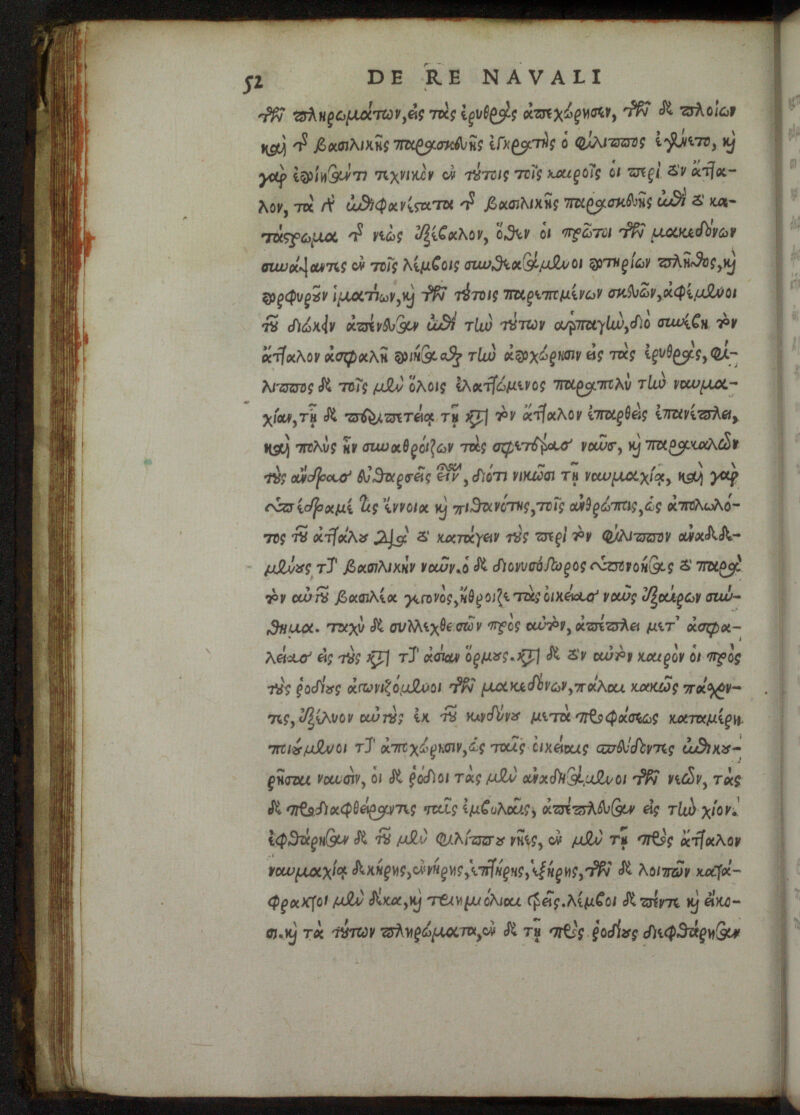 52 DE RE NAVALI
τῶν πληρωμάτων, εἰς τὰς ἐρυθρὰς ἀπεχώρησεν, τῶν δὲ πλοίων
καὶ τῆς βασιλικῆς παρασκευῆς ἐγκρατὴς ὁ φίλιππος ἐγένετο, καὶ
γὰρ ἐποίησάν τι τεχνικὸν ἐν τούτοις τοῖς καιροῖς οἱ περὶ τὸν ἄτταλον,
τὰ γὰρ ἐπιφανέστατα τῆς βασιλικῆς παρασκευῆς ἐπὶ τὸ κατάστρωμα
τῆς νεὼς ἐξέβαλον, ὅθεν οἱ πρῶτοι τῶν μακεδόνων
συνάψαντες ἐν τοῖς λέμβοις συνθεασάμενοι ποτηρίων πλῆθος, καὶ
πορφυρῶν ἱματίων, καὶ τῶν τούτοις παρεπομένων σκευῶν, ἀφέμενοι
τοῦ διώκειν ἀπένευσαν ἐπὶ τὴν τούτων ἁρπαγὴν, διὸ συνέβη τὸν
ἄτταλον ἀσφαλῆ ποιήσασθαι τὴν ἀποχώρησιν εἰς τὰς ἐρυθρὰς, φίλιππος
δὲ τοῖς μὲν ὅλοις ἐλαττώμενος παραπολὺ τὴν ναυμαχίαν,
τῇ δὲ περιπετείᾳ τῇ κατὰ τὸν ἄτταλον ἐπαρθεὶς ἐπανέπλει,
καὶ πολὺς ἦν συναθροίζων τὰς σφετέρας ναῦς, καὶ παρακαλῶν
τοὺς ἄνδρας εὐθαρσεῖς εἶναι, διότι νικῶσι τῇ ναυμαχίᾳ, καὶ γὰρ
ὑπέδραμέ τις ἔννοια καὶ πιθανότης, τοῖς ἀνθρώποις, ὡς ἀπολωλότος
τοῦ ἀττάλου διὰ τὸ κατάγειν τοὺς περὶ τὸν φίλιππον ἀναδεδεμένους
τὴν βασιλικὴν ναῦν. ὁ δὲ διονυσόδωρος ὑπονοήσας τὸ παρὰ
τὸν αὑτοῦ βασιλέα γεγονός, ἤθροιζε τὰς οἰκείας ναῦς ἐξαίρων σύνθημα.
ταχὺ δὲ συλλεχθεισῶν πρὸς αὐτὸν, ἀπέπλει μετ' ἀσφαλείας
εἰς τοὺς κατὰ τὴν ἀσίαν ὅρμους. κατὰ δὲ τὸν αὐτὸν καιρὸν οἱ πρὸς
τοὺς ῥοδίους ἀγωνιζόμενοι τῶν μακεδόνων, πάλαι κακῶς πάσχοντες,
ἐξέλυον αὑτοὺς ἐκ τοῦ κινδύνου μετὰ προφάσεως καταμέρη.
ποιούμενοι τὴν ἀποχώρησιν, ὡς ταῖς οἰκείαις σπεύδοντες ἐπικουρῆσαι
ναυσίν, οἱ δὲ ῥόδιοι τὰς μὲν ἀναδησάμενοι τῶν νεῶν, τὰς
δὲ προδιαφθείραντες ταῖς ἐμβολαῖς, ἀπέπλευσαν εἰς τὴν χίον.
ἐφθάρησαν δὲ τοῦ μὲν φιλίππου νῆες, ἐν μὲν τῇ πρὸς ἄτταλον
ναυμαχίᾳ δεκήρης, ἐννήρης, ἑπτήρης, ἑξήρης, τῶν δὲ λοιπῶν κατάφρακτοι
μὲν δέκα, καὶ τριημιόλιαι τρεῖς. λέμβοι δὲ πέντε καὶ εἴκοσι.
καὶ τὰ τούτων πληρώματα, ἐν δὲ τῇ πρὸς ῥοδίους διεφθάρησαν